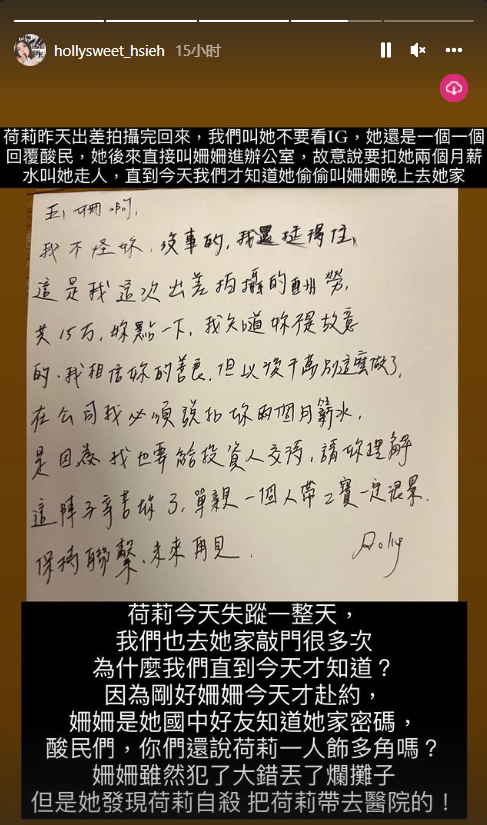 hollysweet_hsieh 15小时
荷莉昨天出差拍攝完回來，我們叫她不要看IG，她還是一個一個
回覆酸民，她後來直接叫姍姍進辦公室，故意說要扣她兩個月薪
水叫她走人，直到今天我們才知道她偷偷叫姍姍晚上去她家
姍啊，
我不怪妳，沒事的，我還挺得住，
這是我這次出差拍攝的酬勞，
共15万，妳點一下，我知道妳不是故意
的，我相信妳的善良，但以後千萬別這麼做了，
在公司我必須說扣妳兩個月薪水，
是因為我也要給投資人交待，請妳理解
這陣子辛苦妳了，單親一個人帶2寶一定很累
保持聯繫，未來再見．
荷莉今天失蹤一整天，
我們也去她家敲門很多次
為什麼我們直到今天才知道？
因為剛好姍姍今天才赴約，
姍姍是她國中好友知道她家密碼，
酸民們，你們還說荷莉一人飾多角嗎？
姍姍雖然犯了大錯丟了爛攤子
但是她發現荷莉自殺 把荷莉帶去醫院的！